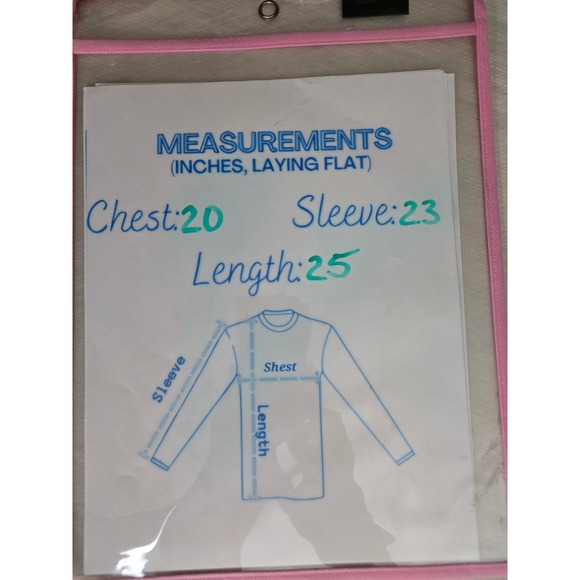 MEASUREMENTS
(INCHES, LAYING FLAT)
Chest:20 Sleeve:23
Length:25
Sleeve
Shest
Length